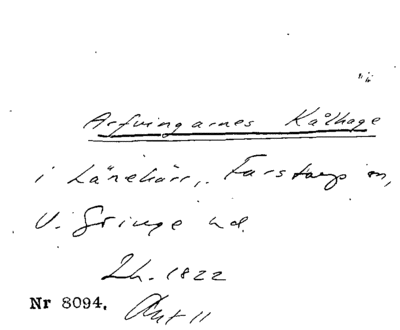 Arfvingarnes Kålhage
i Länekärr, Farstorp sn,
V. Göinge hd.
Lh. 1822
Nr 8094. Akt 11